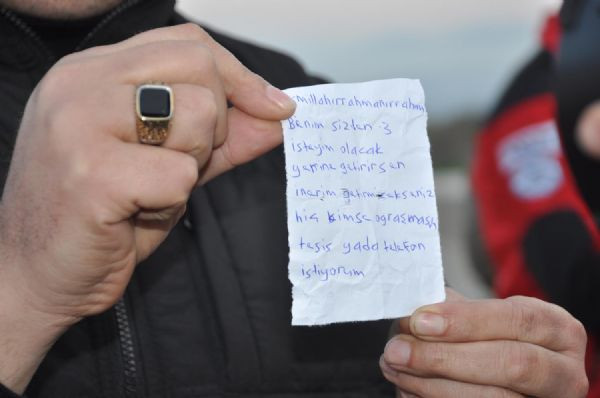 smillahirrahmanirrahim
Benim sizden 3
isteyim olacak
yerine getirirsen
inerim getirmeseksiniz
hiç kimse ograşmasın
tesis yada telefon
istiyorum